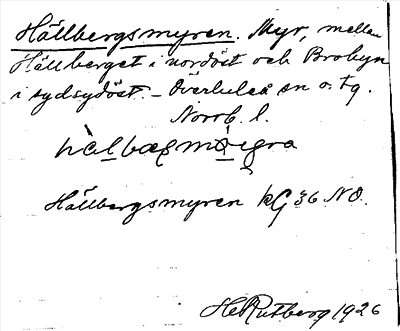 Hällbergsmyren. Myr, mellan
Hällberget i nordöst och Brobyn
i sydsydöst. – Överluleå sn o. tg.
Norrb. l.
Hällbergsmyren kG 36 NO.
HelRutberg 1926